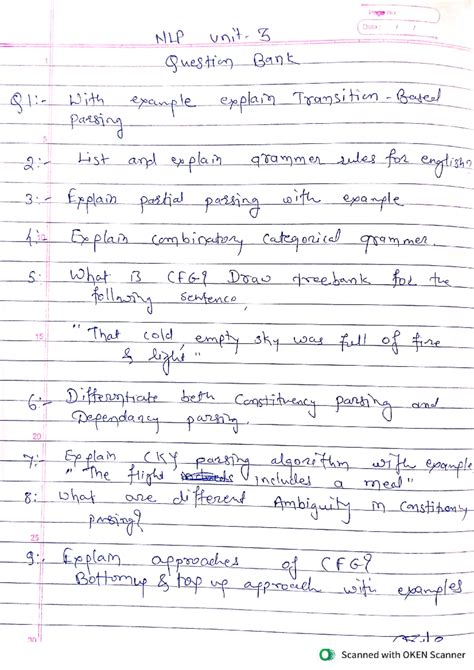 Page No.
Date: / /
NLP Unit-3
Question Bank
Q1:- With example explain Transition-Based
parsing
2:- List and explain grammer rules for english?
3:- Explain partial parsing with example
4:- Explain combinatory categorical grammer.
5:- What is CFG? Draw treebank for the
following sentence,
"That cold, empty sky was full of fire
& light"
6:- Differntiate beth Constituency parsing and
Dependancy parsing.
7:- Explain CKY parsing algorithm with example
"The flight includes a meal"
8:- What are different Ambiguity in Constituency
parsing?
9:- Explain approaches of CFG?
Bottomup & top up approach with examples
5
15
20
25
30
Scanned with OKEN Scanner